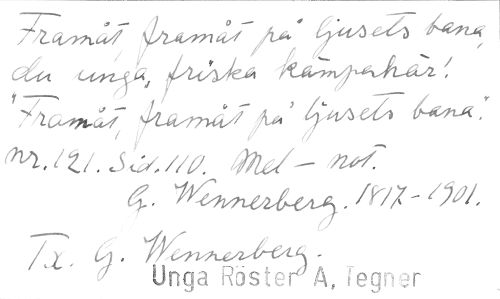 Framåt, framåt på ljusets bana,
du unga, friska kämparhär!
"Framåt, framåt på ljusets bana".
nr. 121. Sid. 110. Mel - not.
G. Wennerberg. 1817-1901.
Tx. G. Wennerberg.
Unga Röster A. Tegner